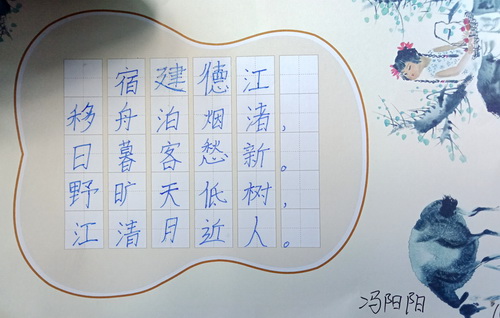 宿建德江
移舟泊烟渚，
日暮客愁新。
野旷天低树，
江清月近人。
冯阳阳